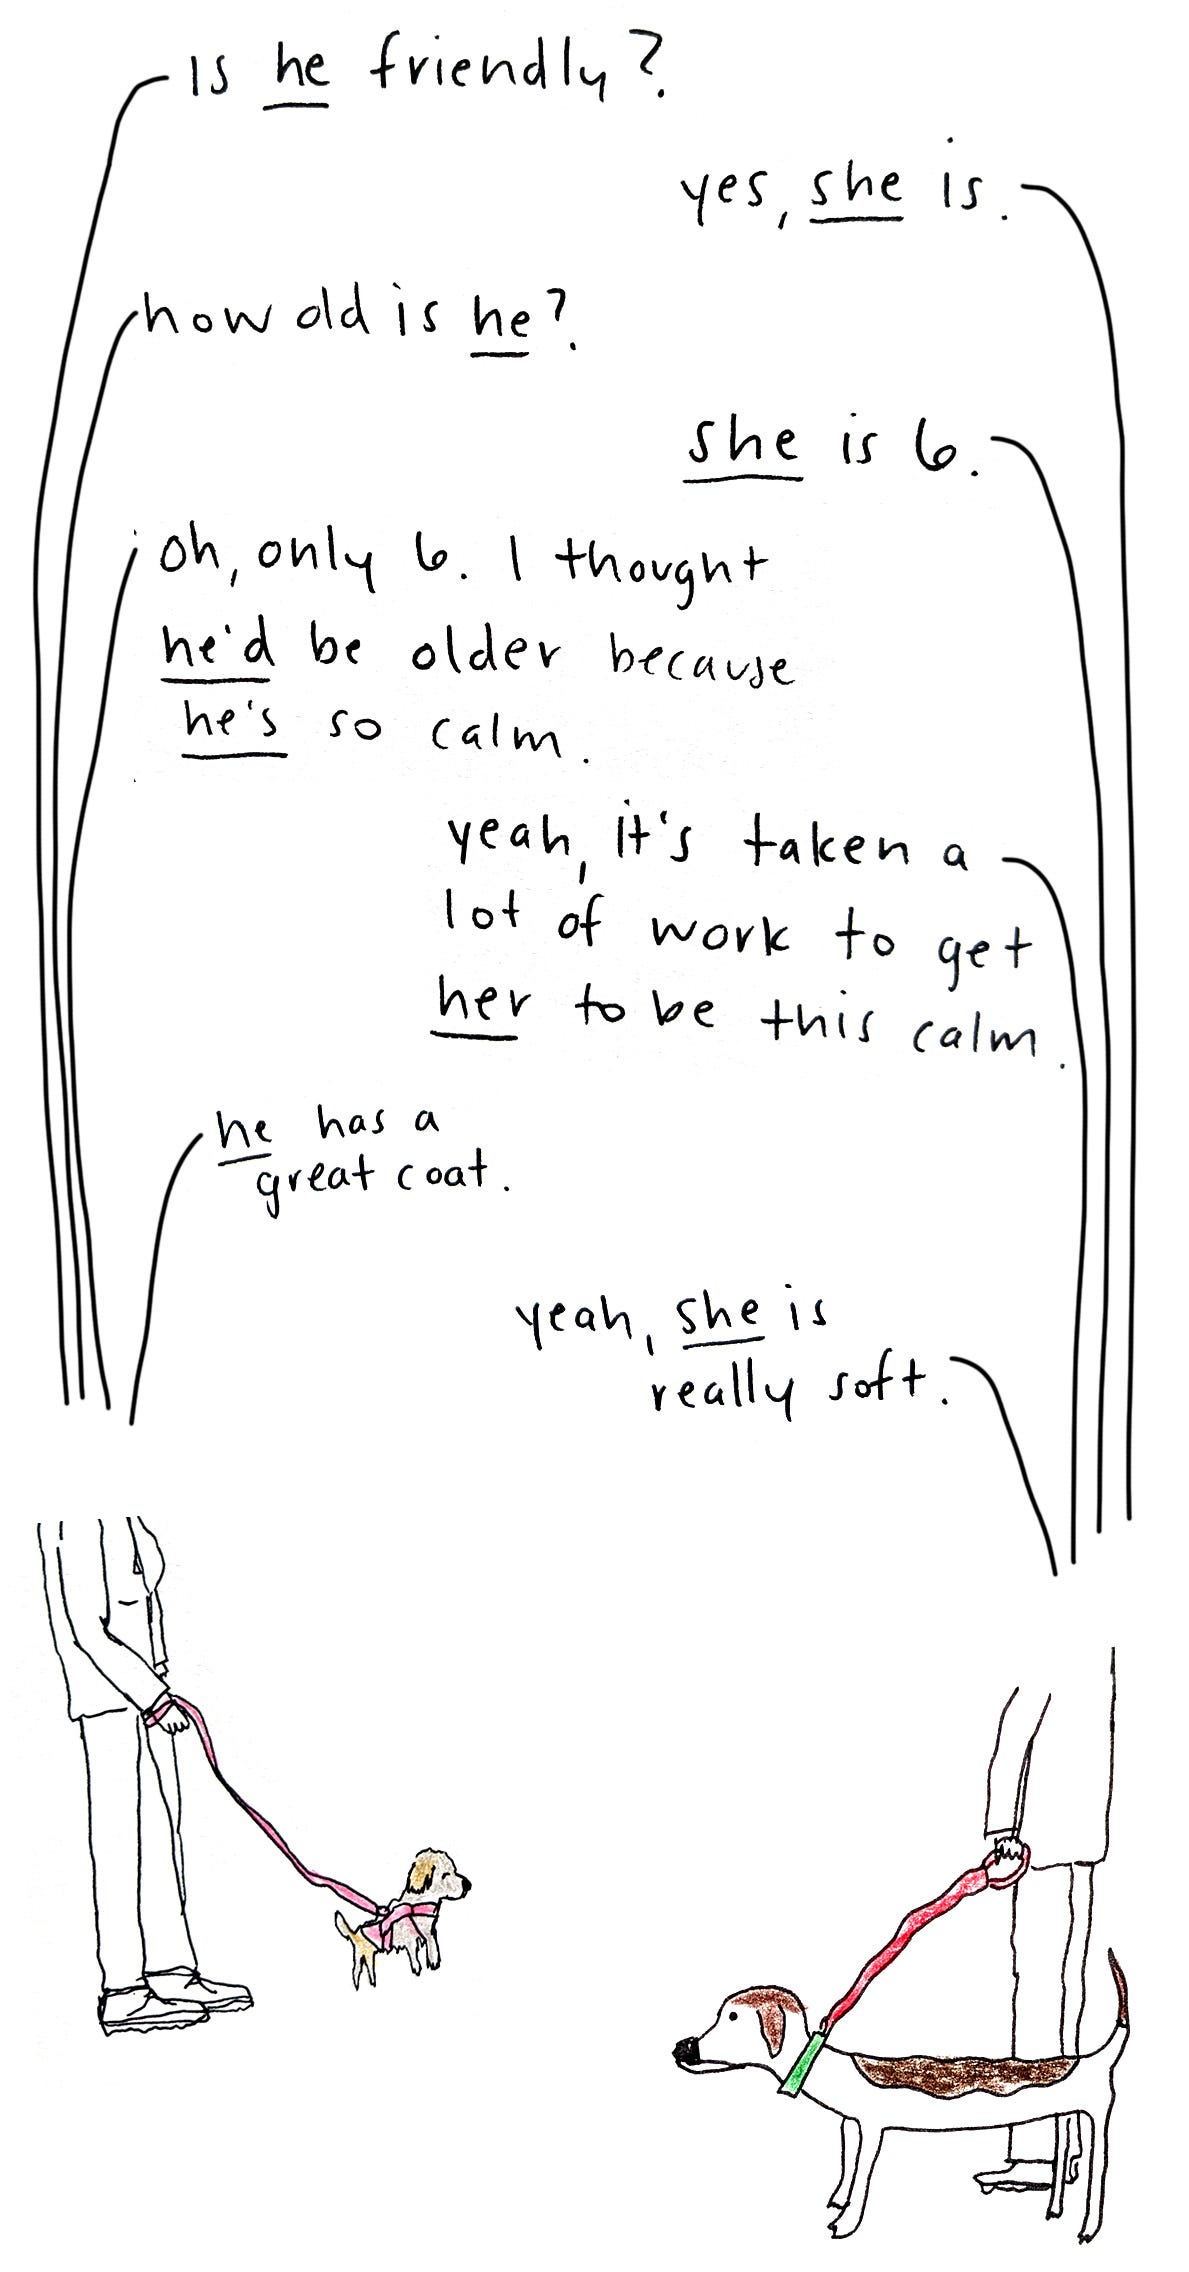 is he friendly?
yes, she is.
how old is he?
she is 6.
oh, only 6. I thought
he'd be older because
he's so calm.
yeah, it's taken a
lot of work to get
her to be this calm.
he has a
great coat.
yeah, she is
really soft.